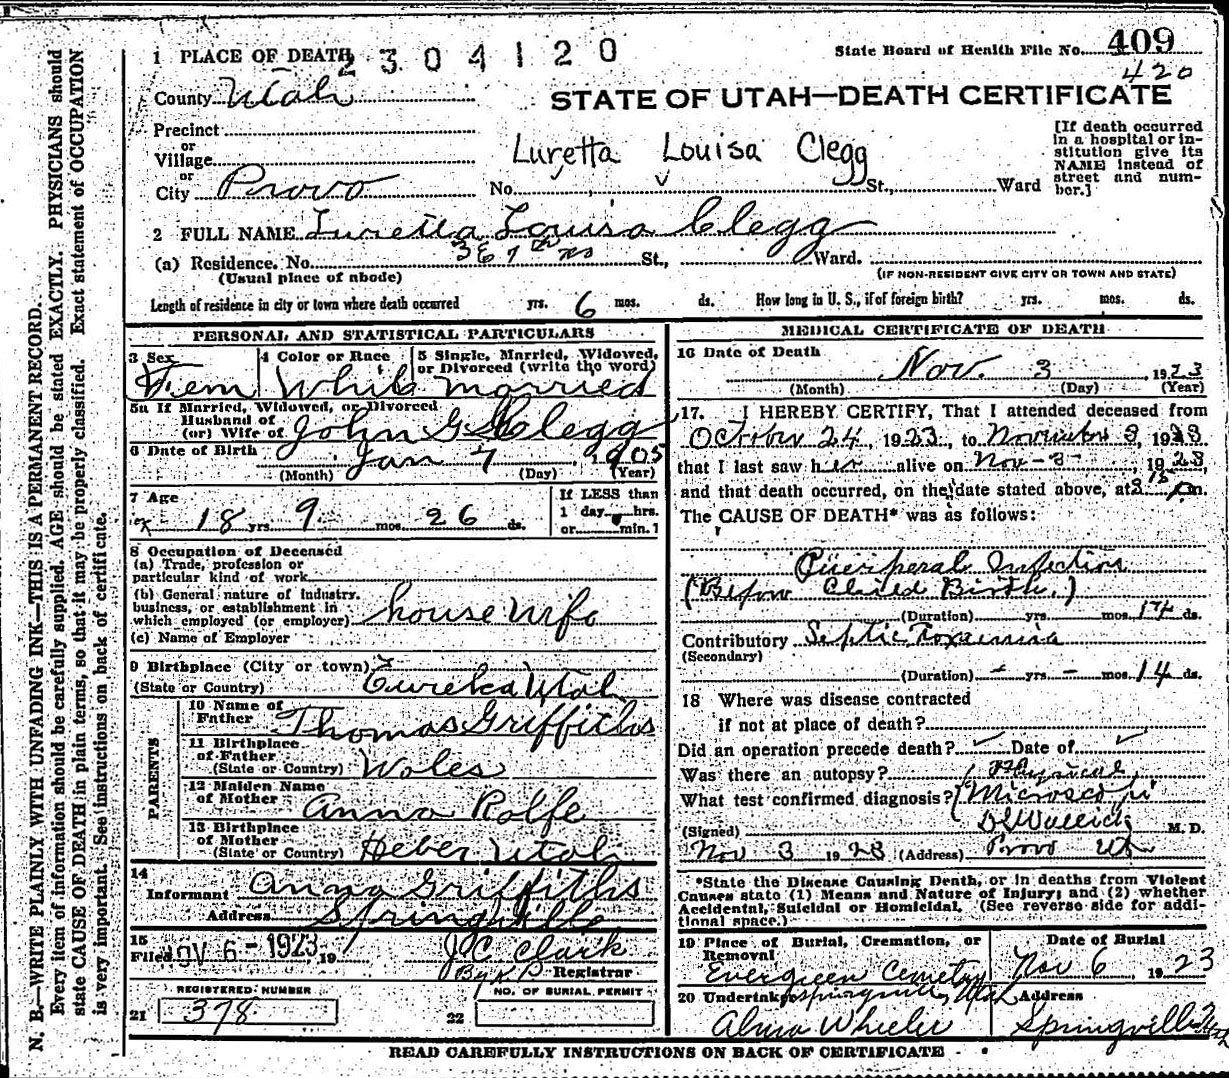 N. B.—WRITE PLAINLY WITH UNFADING INK—THIS IS A PERMANENT RECORD.
Every item of information should be carefully supplied. AGE should be stated EXACTLY. PHYSICIANS should
state CAUSE OF DEATH in plain terms, so that it may be properly classified. Exact statement of OCCUPATION
is very important. See instructions on back of certificate.
1 PLACE OF DEATH 2304120
State Board of Health File No. 409
420
County Utah
STATE OF UTAH—DEATH CERTIFICATE
Precinct
or
Village
or
City Provo
Luretta Louisa Clegg
No. St., Ward
[If death occurred
in a hospital or in-
stitution give its
NAME instead of
street and num-
ber.]
2 FULL NAME Luretta Louisa Clegg
(a) Residence. No. St., Ward.
(Usual place of abode)
(IF NON-RESIDENT GIVE CITY OR TOWN AND STATE)
Length of residence in city or town where death occurred yrs. 6 mos. ds. How long in U. S., if of foreign birth? yrs. mos. ds.
PERSONAL AND STATISTICAL PARTICULARS
3 Sex
Fem
4 Color or Race
White
5 Single, Married, Widowed,
or Divorced (write the word)
married
5a If Married, Widowed, or Divorced
Husband of
(or) Wife of John G Clegg
6 Date of Birth
Jan 7, 1905
(Month) (Day) (Year)
7 Age
18 yrs. 9 mos. 26 ds.
If LESS than
1 day hrs.
or min.?
8 Occupation of Deceased
(a) Trade, profession or
particular kind of work
(b) General nature of industry,
business, or establishment in
which employed (or employer) house wife
(c) Name of Employer
9 Birthplace (City or town)
(State or Country) Eureka Utah
PARENTS
10 Name of
Father Thomas Griffiths
11 Birthplace
of Father
(State or Country) Wales
12 Maiden Name
of Mother Anna Rolfe
13 Birthplace
of Mother
(State or Country) Heber Utah
14
Informant Anna Griffiths
Address Springville
15
Filed NOV 6 - 1923 19
J C Clark
Registrar
REGISTERED NUMBER
21 378
NO. OF BURIAL PERMIT
22
MEDICAL CERTIFICATE OF DEATH
16 Date of Death
Nov. 3, 1923
(Month) (Day) (Year)
17. I HEREBY CERTIFY, That I attended deceased from
October 24, 1923, to November 3, 1923
that I last saw her alive on Nov-3-, 1923,
and that death occurred, on the date stated above, at m.
The CAUSE OF DEATH* was as follows:
Puerperal Infection
(Before Child Birth.)
(Duration) yrs. mos. 14 ds.
Contributory Septic Toxaemia
(Secondary)
(Duration) - yrs. - mos. 14 ds.
18 Where was disease contracted
if not at place of death?
Did an operation precede death? Date of
Was there an autopsy?
Physical
What test confirmed diagnosis? Microscopic
(Signed) M. D.
Nov 3 1923 (Address) Provo Ut
*State the Disease Causing Death, or in deaths from Violent
Causes state (1) Means and Nature of Injury; and (2) whether
Accidental, Suicidal or Homicidal. (See reverse side for addi-
tional space.)
19 Place of Burial, Cremation, or
Removal
Evergreen Cemetery
Springville, Utah
Date of Burial
Nov 6, 1923
20 Undertaker
Alma Wheeler
Address
Springville
READ CAREFULLY INSTRUCTIONS ON BACK OF CERTIFICATE